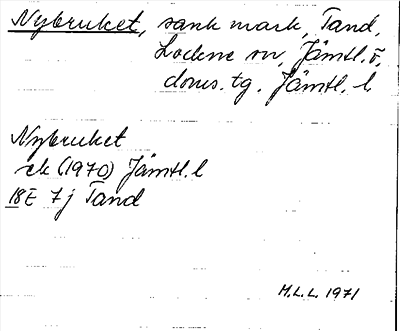 Nybruket, sank mark, Tand,
Lockne sn, Jämtl. v,
doms. tg. Jämtl. l
Nybruket
ek (1970) Jämtl. l
18E 7j Tand
M.L.L. 1971